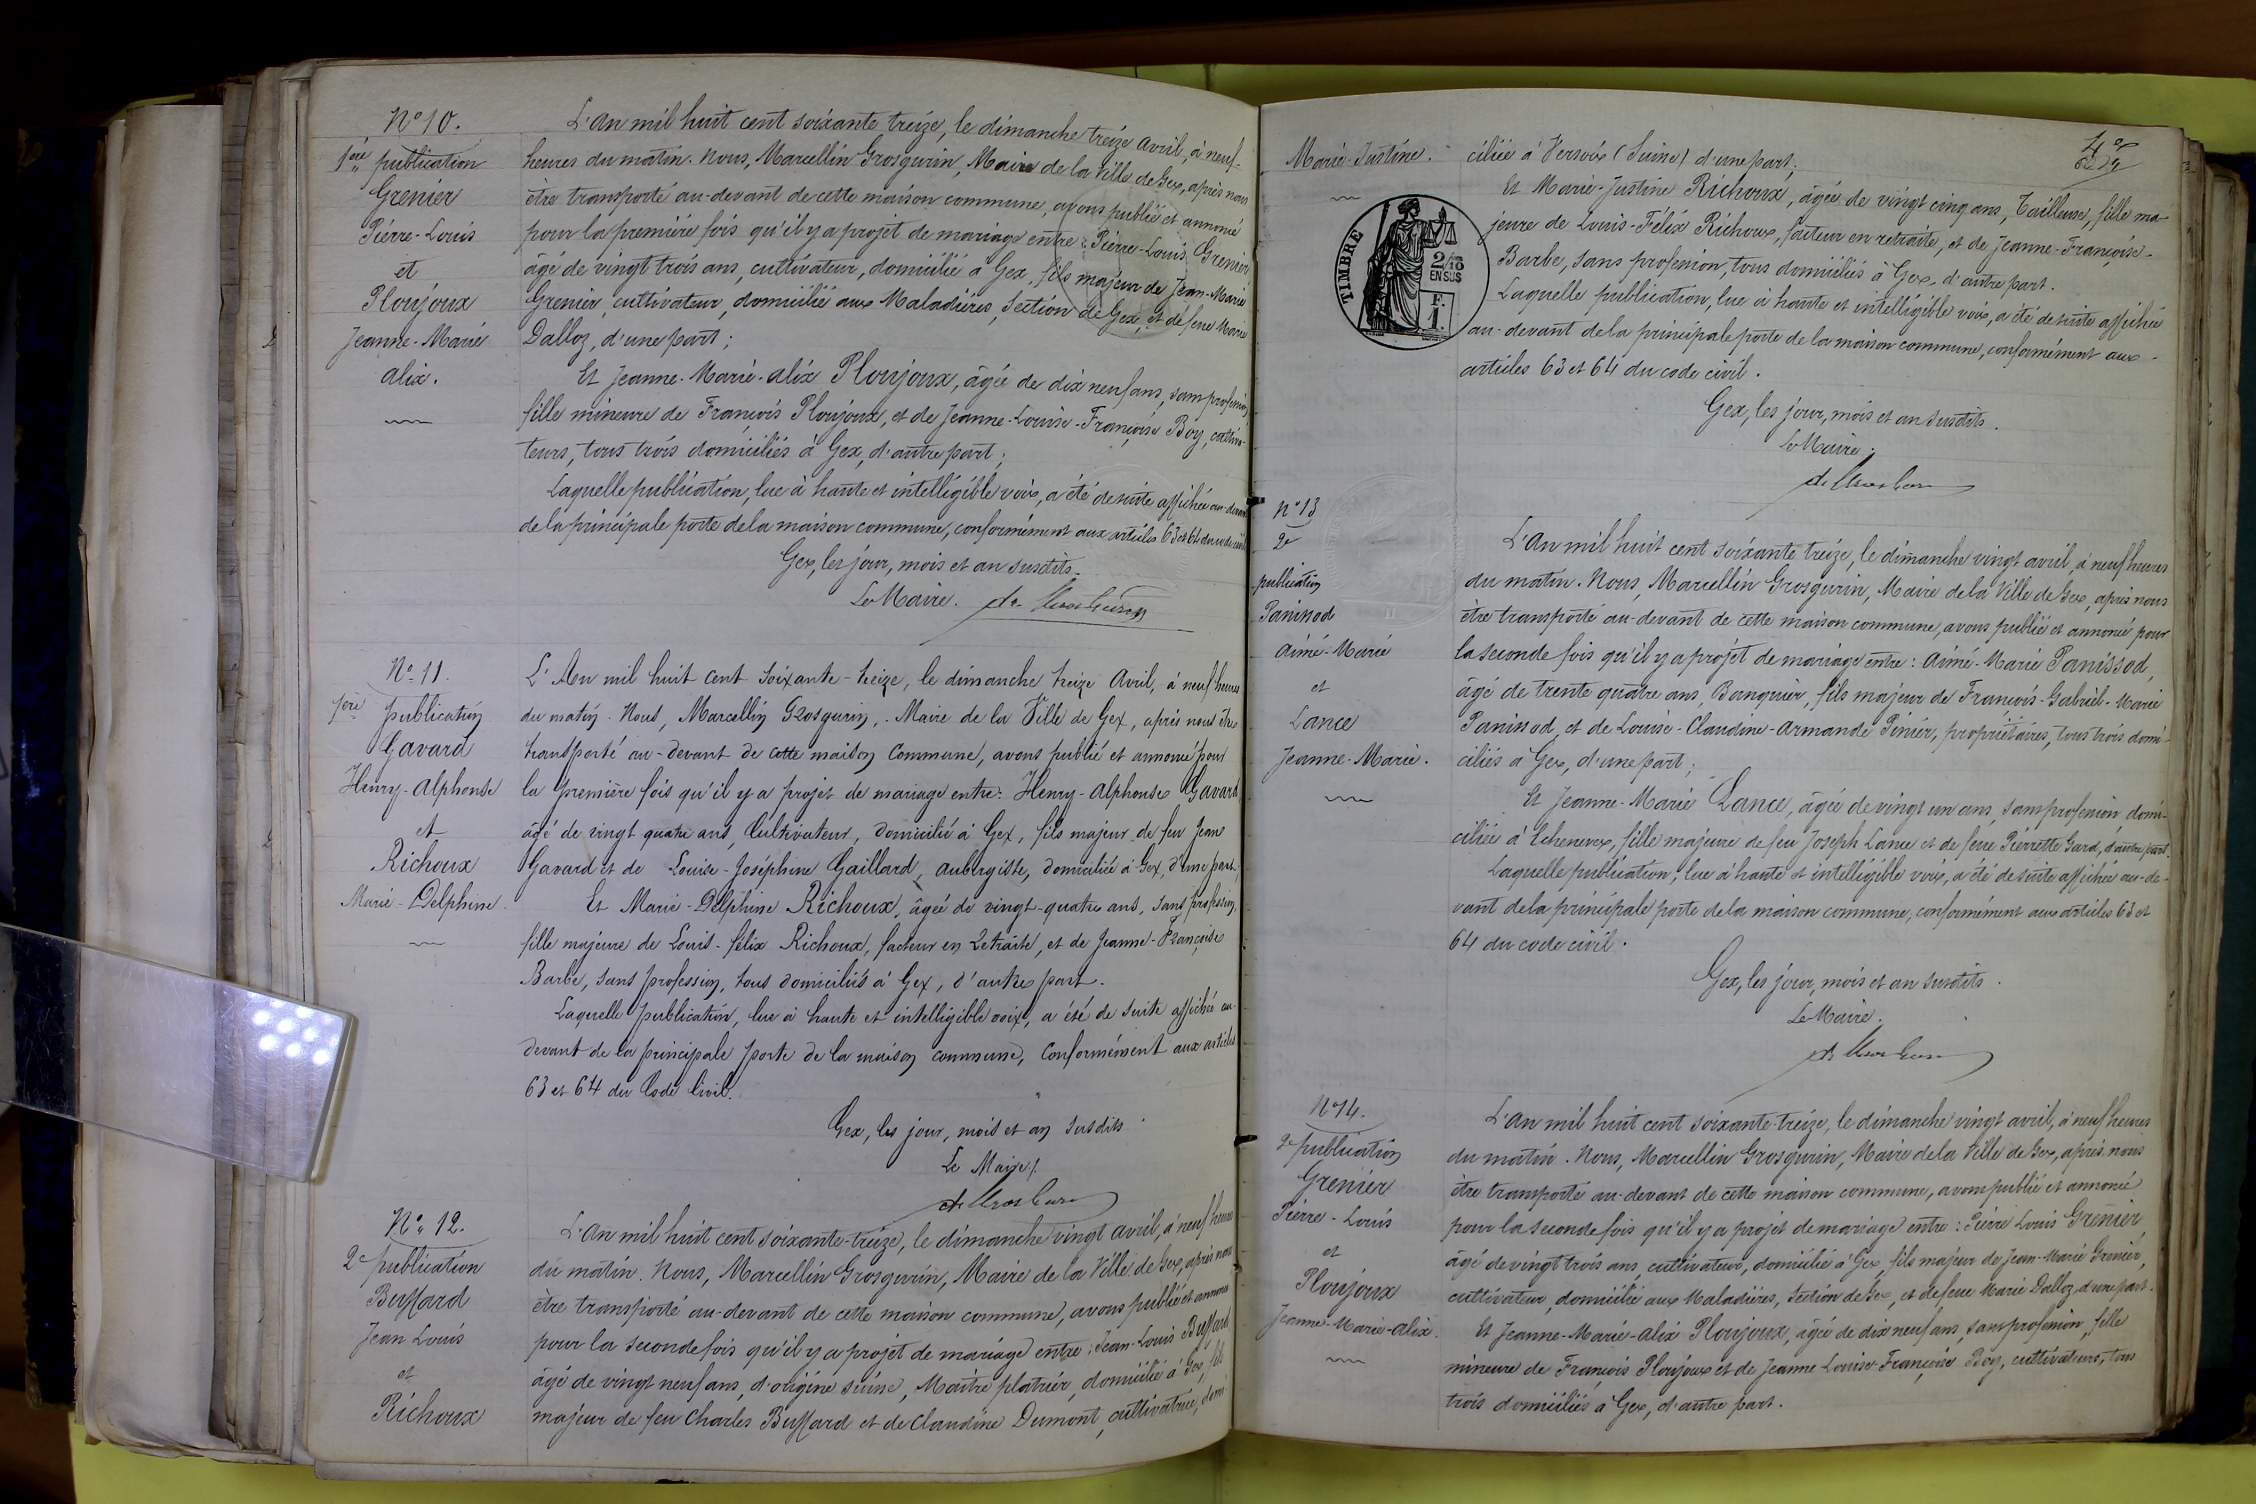 N° 10.
1ère publication
Grenier
Pierre-Louis
et
Ploujoux
Jeanne-Marie
Alix.
L'An mil huit cent soixante treize, le dimanche treize avril, à neuf
heures du matin. Nous, Marcellin Grosgurin, Maire de la Ville de Gex, après nous
être transporté au-devant de cette maison commune, avons publié et annoncé
pour la première fois qu'il y a projet de mariage entre : Pierre-Louis Grenier
âgé de vingt trois ans, cultivateur, domicilié à Gex, fils majeur de Jean-Marie
Grenier, cultivateur, domicilié aux Maladières, section de Gex, et de feue Marie
Dalloz, d'une part ;
Et Jeanne-Marie-Alix Ploujoux, âgée de dix neuf ans, sans profession,
fille mineure de François Ploujoux, et de Jeanne-Louise-Françoise Boy, cultiva-
teurs, tous trois domiciliés à Gex, d'autre part ;
Laquelle publication, lue à haute et intelligible voix, a été de suite affichée au-devant
de la principale porte de la maison commune, conformément aux articles 63 et 64 du code civil
Gex, les jour, mois et an susdits.
Le Maire.
N° 11.
1ère publication
Gavard
Henry-Alphonse
et
Richoux
Marie-Delphine.
L'An mil huit cent soixante-treize, le dimanche treize Avril, à neuf heures
du matin. Nous, Marcellin Grosgurin, Maire de la Ville de Gex, après nous être
transporté au-devant de cette maison commune, avons publié et annoncé pour
la première fois qu'il y a projet de mariage entre : Henry-Alphonse Gavard
âgé de vingt quatre ans, Cultivateur, domicilié à Gex, fils majeur de feu Jean
Gavard et de Louise-Joséphine Gaillard, aubergiste, domiciliée à Gex, d'une part,
Et Marie-Delphine Richoux, âgée de vingt-quatre ans, sans profession,
fille majeure de Louis-félix Richoux, facteur en retraite, et de Jeanne-Françoise
Barbe, sans profession, tous domiciliés à Gex, d'autre part.
Laquelle publication, lue à haute et intelligible voix, a été de suite affichée au-
devant de la principale porte de la maison commune, conformément aux articles
63 et 64 du Code Civil.
Gex, les jour, mois et an susdits
Le Maire
N° 12.
2e publication
Buffard
Jean Louis
et
Richoux
L'An mil huit cent soixante-treize, le dimanche vingt avril, à neuf heures
du matin. Nous, Marcellin Grosgurin, Maire de la Ville de Gex, après nous
être transporté au-devant de cette maison commune, avons publié et annoncé
pour la seconde fois qu'il y a projet de mariage entre : Jean-Louis Buffard
âgé de vingt neuf ans, d'origine suisse, Maître plâtrier, domicilié à Gex, fils
majeur de feu Charles Buffard et de Claudine Dumont, cultivatrice, domi
Marie-Justine.
ciliée à Versoix (Suisse) d'une part ;
Et Marie-Justine Richoux, âgée de vingt cinq ans, Tailleuse, fille ma-
jeure de Louis-Félix Richoux, facteur en retraite, et de Jeanne-Françoise-
Barbe, sans profession, tous domiciliés à Gex, d'autre part.
Laquelle publication, lue à haute et intelligible voix, a été de suite affichée
au-devant de la principale porte de la maison commune, conformément aux
articles 63 et 64 du code civil.
Gex, les jour, mois et an susdits.
Le Maire.
TIMBRE
2/10
EN SUS
F.
1.
N° 13
2e
publication
Panissod
Aimé-Marie
et
Lance
Jeanne-Marie.
L'An mil huit cent soixante treize, le dimanche vingt avril, à neuf heures
du matin. Nous, Marcellin Grosgurin, Maire de la Ville de Gex, après nous
être transporté au-devant de cette maison commune, avons publié et annoncé pour
la seconde fois qu'il y a projet de mariage entre : Aimé-Marie Panissod,
âgé de trente quatre ans, Banquier, fils majeur de François-Gabriel-Marie
Panissod, et de Louise-Claudine-Armande Pinier, propriétaires, tous trois domi-
ciliés à Gex, d'une part ;
Et Jeanne-Marie Lance, âgée de vingt un ans, sans profession domi-
ciliée à Echenevex, fille majeure de feu Joseph Lance et de feue Pierrette Gard, d'autre part.
Laquelle publication, lue à haute et intelligible voix, a été de suite affichée au-de-
vant de la principale porte de la maison commune, conformément aux articles 63 et
64 du code civil.
Gex, les jour, mois et an susdits.
Le Maire.
N° 14.
2e publication
Grenier
Pierre-Louis
et
Ploujoux
Jeanne-Marie-Alix.
L'An mil huit cent soixante-treize, le dimanche vingt avril, à neuf heures
du matin. Nous, Marcellin Grosgurin, Maire de la Ville de Gex, après nous
être transporté au-devant de cette maison commune, avons publié et annoncé
pour la seconde fois qu'il y a projet de mariage entre : Pierre Louis Grenier
âgé de vingt trois ans, cultivateur, domicilié à Gex, fils majeur de Jean-Marie Grenier,
cultivateur, domicilié aux Maladières, section de Gex, et de feue Marie Dalloz, d'une part.
Et Jeanne-Marie-Alix Ploujoux, âgée de dix neuf ans, sans profession, fille
mineure de François Ploujoux et de Jeanne Louise-Françoise Boy, cultivateurs, tous
trois domiciliés à Gex, d'autre part.